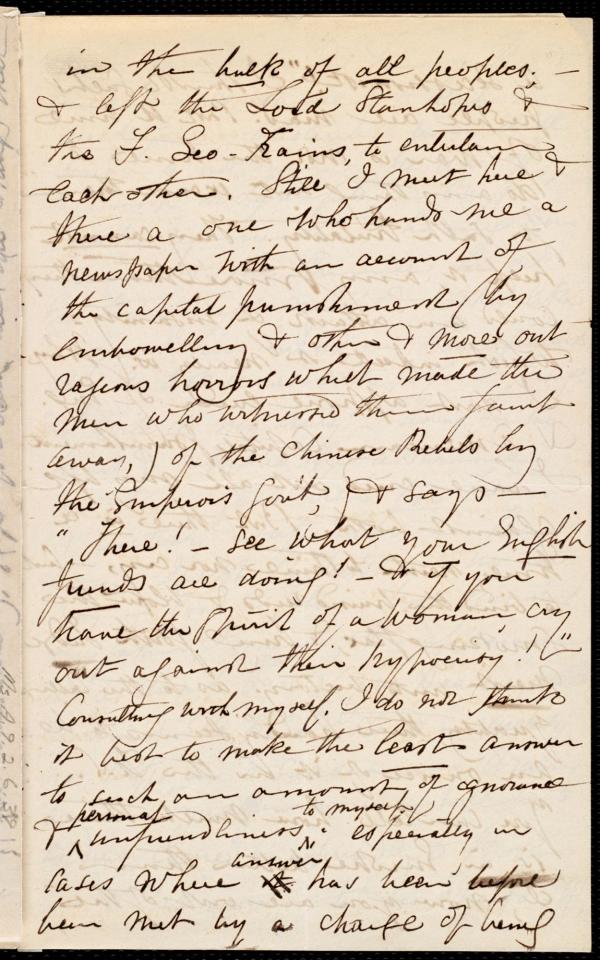 in the bulk of all peoples; —
& left the Lord Stanhopes &
the F. Geo-Trains, to entertain
each other. Still I meet here &
there a one who hands me a
newspaper with an account of
the capital punishment (by
embowelling & other & more out
rageous horrors which made the
men who witnessed them faint
away,) of the Chinese Rebels by
the Emperor's Gov't, & says —
"There! — see what your English
friends are doing! — & if you
have the spirit of a woman, cry
out against their hypocrisy!"
Consulting with myself, I do not think
it best to make the least answer
to such an amount of ignorance
& personal unfriendliness to myself; especially in
cases where answer has been before
been met by a charge of being